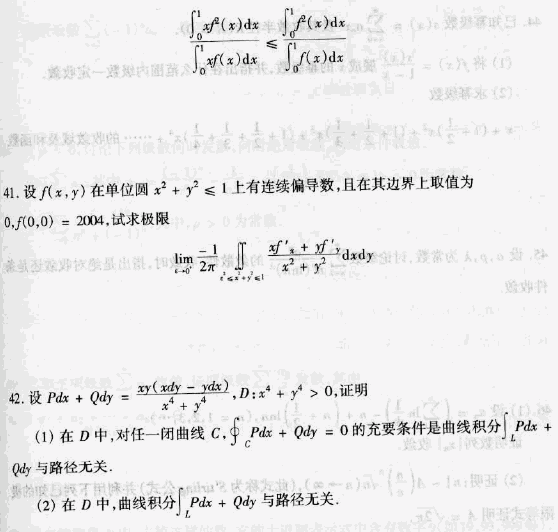 \frac{\int_0^1 xf^2(x)dx}{\int_0^1 xf(x)dx} ≤ \frac{\int_0^1 f^2(x)dx}{\int_0^1 f(x)dx}
41. 设 f(x,y) 在单位圆 x² + y² ≤ 1 上有连续偏导数,且在其边界上取值为
0,f(0,0) = 2004,试求极限
\lim_{ε→0^+} \frac{-1}{2π} \iint_{ε²≤x²+y²≤1} \frac{xf'_x + yf'_y}{x² + y²} dxdy
42. 设 Pdx + Qdy = \frac{xy(xdy - ydx)}{x⁴ + y⁴}, D: x⁴ + y⁴ > 0,证明
(1) 在 D 中,对任一闭曲线 C, ∮_C Pdx + Qdy = 0 的充要条件是曲线积分∫_L Pdx +
Qdy 与路径无关.
(2) 在 D 中,曲线积分∫_L Pdx + Qdy 与路径无关.